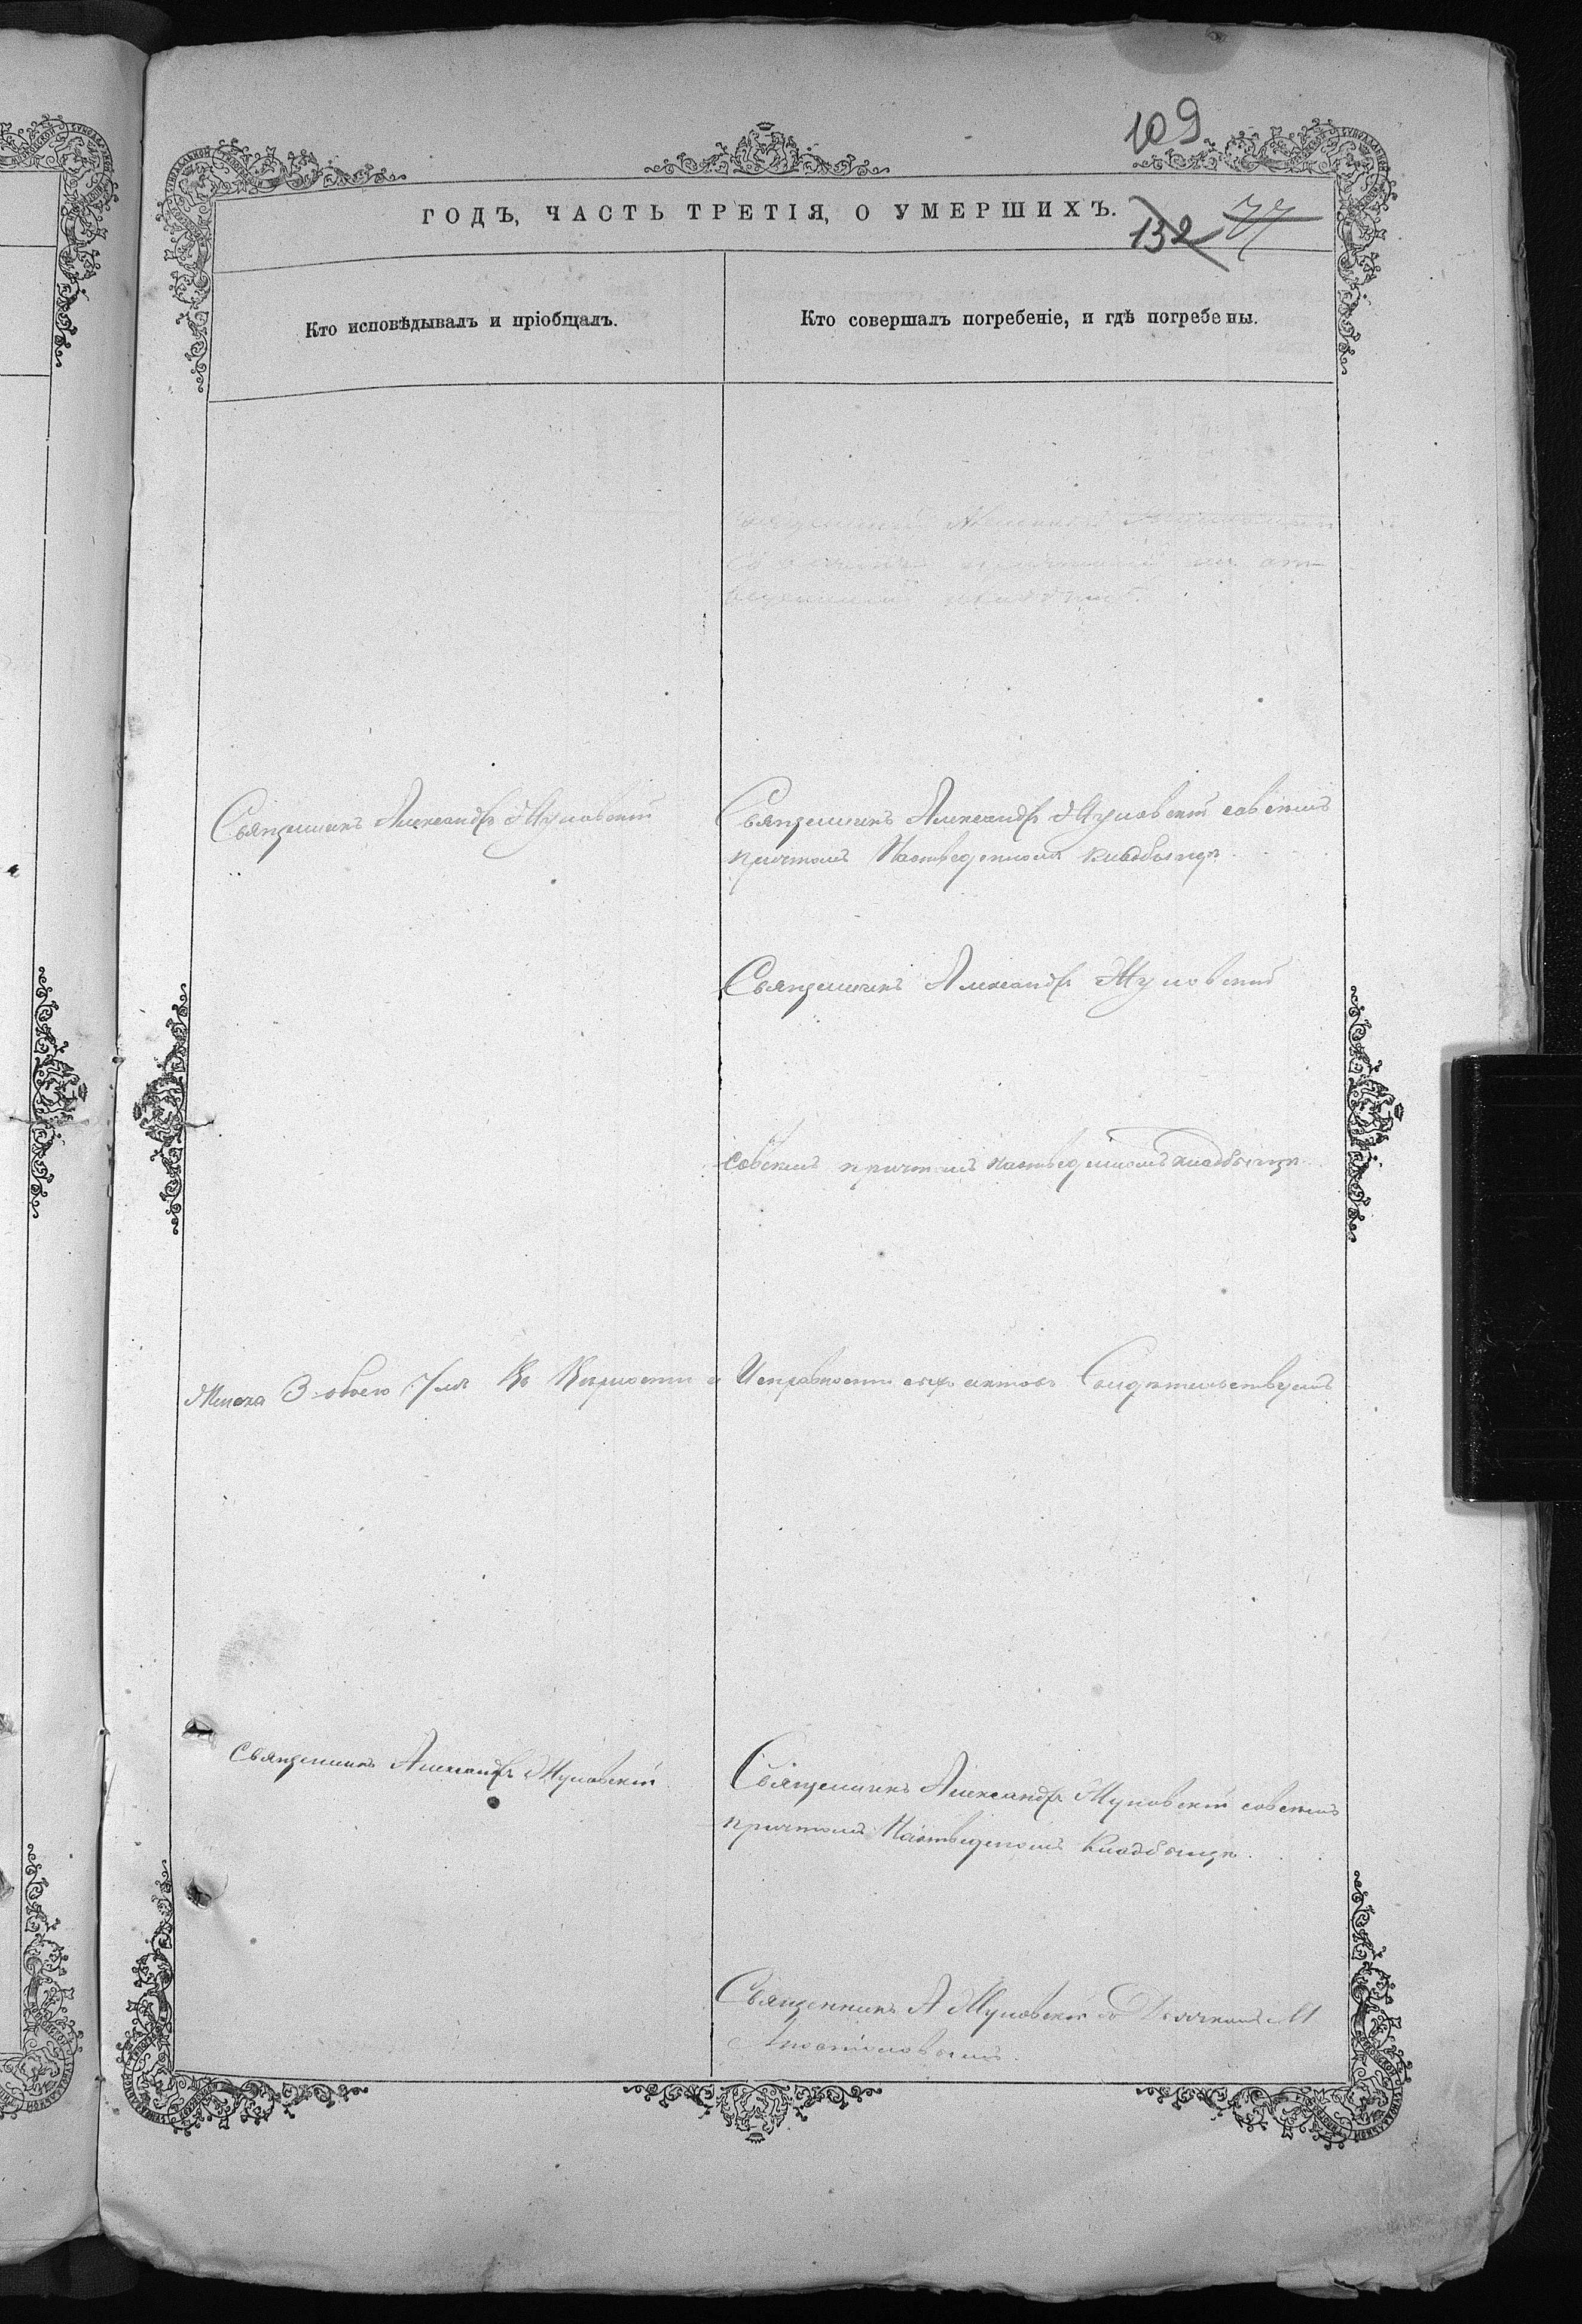 109
ГОДЪ, ЧАСТЬ ТРЕТІЯ, О УМЕРШИХЪ.
132 77
Кто исповѣдывалъ и пріобщалъ.
Кто совершалъ погребеніе, и гдѣ погребены.
Священникъ Александръ Жуковскій
Священникъ Александръ Жуковскій совсѣмъ
причтомъ Наотведенномъ кладбищѣ.
Священникъ Александръ Жуковскій
совсѣмъ причтомъ наотведенномъ кладбищѣ.
Женска 3 обоего 7 Къ Вѣрности и Исправности сихъ актовъ Свидѣтельствуемъ
Священникъ Александръ Жуковскій
Священникъ Александръ Жуковскій совсѣмъ
причтомъ Наотведеномъ Кладбищѣ.
Священникъ А Жуковскій съ Дьячкомъ М